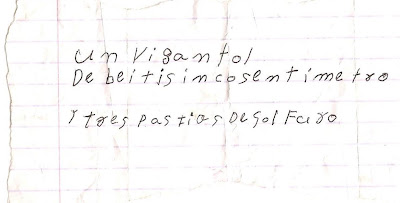 un Vigantol
De beitisincosentimetro
Y tres pastias De sol Furo